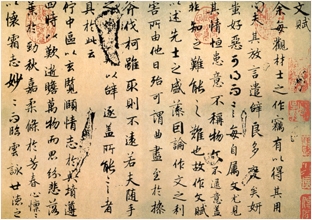 文賦
余每觀材士之作竊有以得其用
心夫其放言遣辭良多變矣妍
蚩好惡可得而言每自屬文尤見
其情恒患意不稱物文不逮意蓋
非知之難能之難也故作文賦
以述先士之盛藻因論作文之利
害所由他日殆可謂曲盡至於操
斧伐柯雖取則不遠若夫隨手
之變良難以辭逮蓋所能言者
具於此云
佇中區以玄覽頤情志於典墳遵
四時以歎逝瞻萬物而思紛悲落
葉於勁秋嘉柔條於芳春心懍
以懷霜志眇眇而臨雲詠世德之